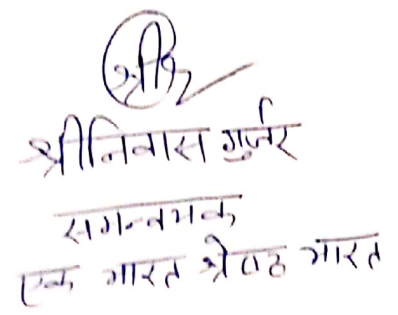 श्री
श्रीनिवास गुर्जर
समन्वयक
एक भारत श्रेष्ठ भारत